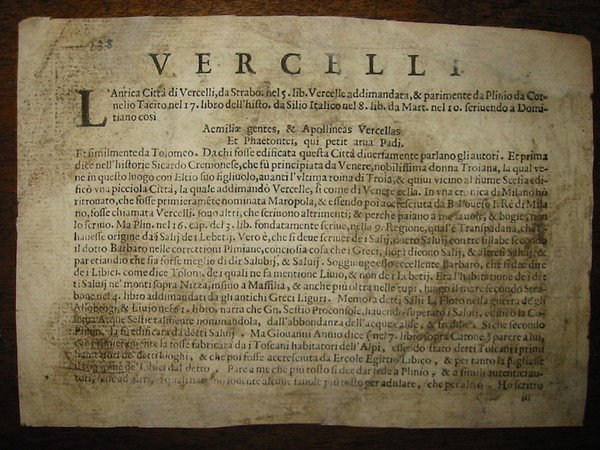 188
VERCELLI
L'Antica Città di Vercelli, da Strabo. nel 5. lib. Vercelle addimandata, & parimente da Plinio da Cor-
nelio Tacito nel 17. libro dell'histo. da Silio Italico nel 8. lib. da Mart. nel 10. scriuendo a Domi-
tiano così
Aemiliæ gentes, & Apollineas Vercellas
Et Phaetontei, qui petit arua Padi.
Et similmente da Tolomeo. Da chi fosse edificata questa Città diuersamente parlano gli autori. Et prima
dice nell'historie Sicardo Cremonese, che fù principiata da Venere, nobilissima donna Troiana, la qual ven
ne in questo luogo con Elcio suo figliuolo, auanti l'vltima roina di Troia, & quiui vicino al fiume Sesia edifi
cò vna picciola Città, la quale addimandò Vercelle, sì come di Venere cella. In vna cronica di Milano hò
ritrouato, che fosse primieramēte nominata Maropola, & essendo poi accresciuta da Re di Mila
no, fosse chiamata Vercelli. sono altri, che scriuono altrimenti; & perche paiano a me fauole, & bugie, non
lo scriuo. Ma Plin. nel 16. cap. del 3. lib. fondatamente scriue, nella 9. Regione, qual'è Transpadana, che
l'hauesse origine da i Salij de i Lebetij. Vero è, che si deue scriuer de i Salij, ouero Saluij con tre sillabe secondo
il dotto Barbaro nelle correttioni Pliniane, conciosia cosa che i Greci, hor i dicono Salij, & altresì Saluij, &
par etiandio che sia forse meglio di dir Salubij, & Saluij. Soggiunge esso eccellente Barbaro, che si dee dire
de i Libici. come dice Tolom. de i quali ne fa mentione Liuio, & non de i Lebetij. Era l'habitatione de i det
ti Saluij ne' monti sopra Nizza, insino a Massilia, & anche più oltra nelle rupi, lungo il mare secondo Strabo
ne nel 4. libro addimandati da gli antichi Greci Liguri. Memora detti Salij L. Floro nella guerra de gli
Allobrogi, & Liuio nel 61. libro, narra che Gn. Sestio Proconsole, hauendo superato i Saluij, edificò la Co
lonia Acque Sestie talmente nominandola, dall'abbondanza dell'acque calde, & fredde. Sì che secondo
Plinio, fu edificata da detti Saluij. Ma Giouanni Annio dice (nel 7. libro sopra Catone) parere a lui,
che primieramente la fosse fabricata da i Toscani habitatori dell'Alpi, essendo stato detti Toscani primi
habitatori de' detti luoghi, & che poi fosse accresciuta da Ercole Egittio Libico, & per tanto la pigliasse
origine de' Libici dal detto. Pare a me che più tosto si dee dar fede a Plinio, & a simili autentici au-
tori, che ad altri, alcune fauole più tosto per adulare, che per altro. Ho scritto
in